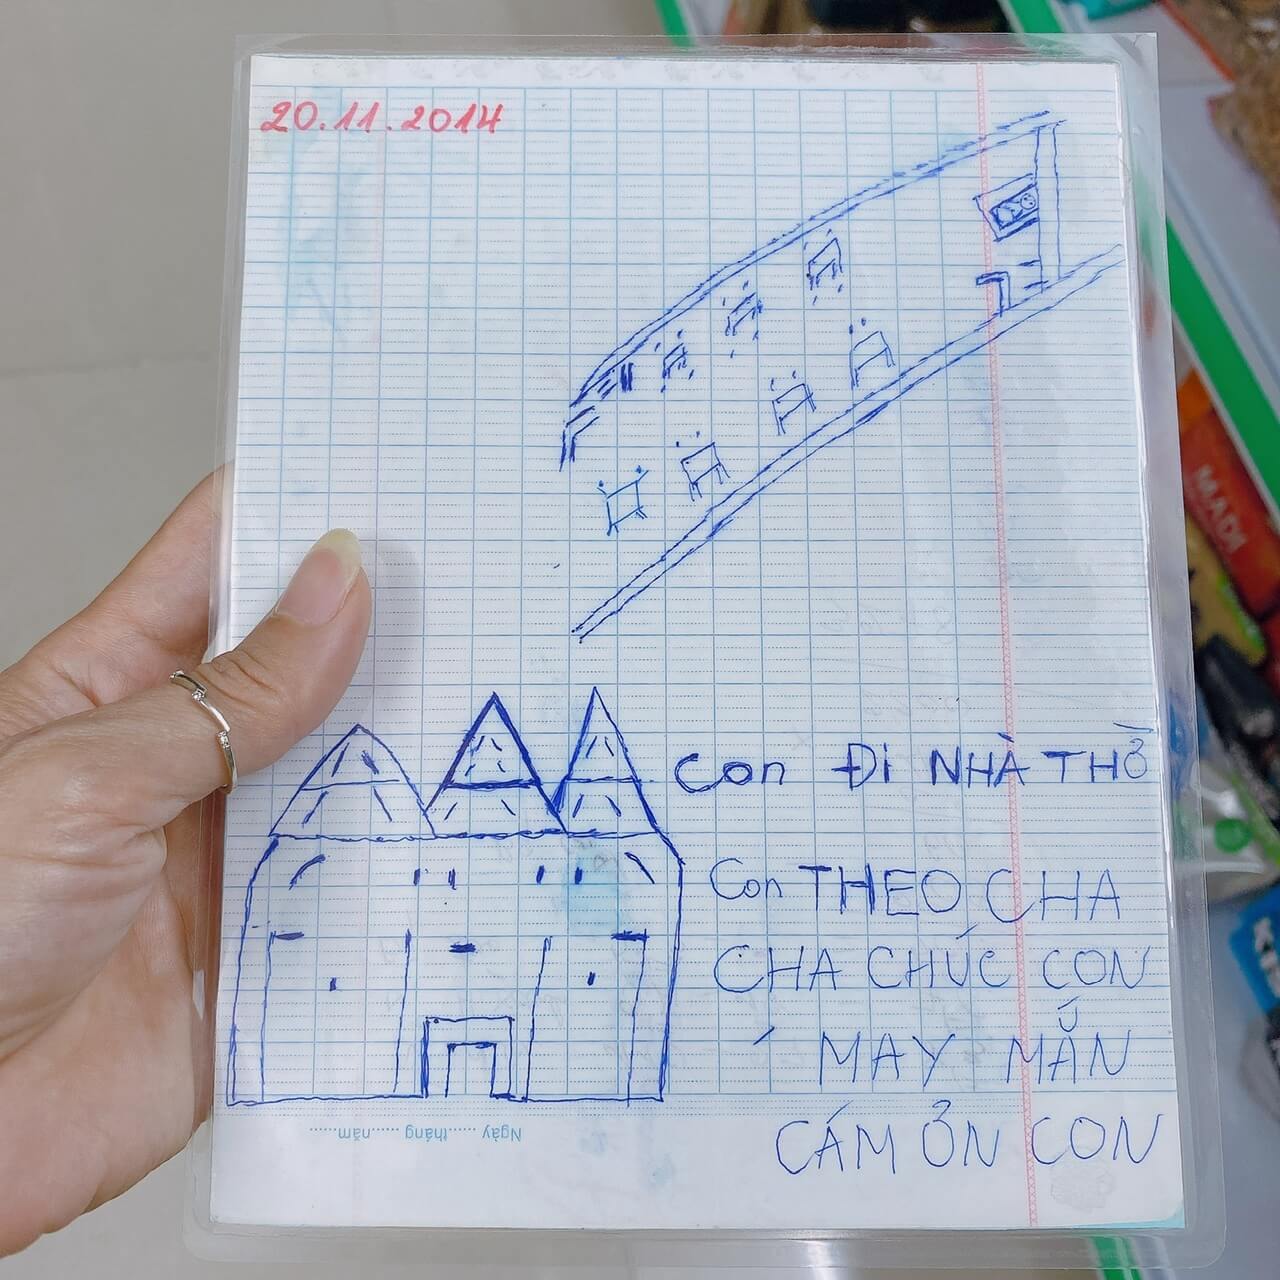 20.11.2014
Con Đi NHÀ THỜ
Con THEO CHA
CHA CHÚC CON
MAY MẮN
CÁM ỞN CON
Ngày......tháng......năm.......
MADI